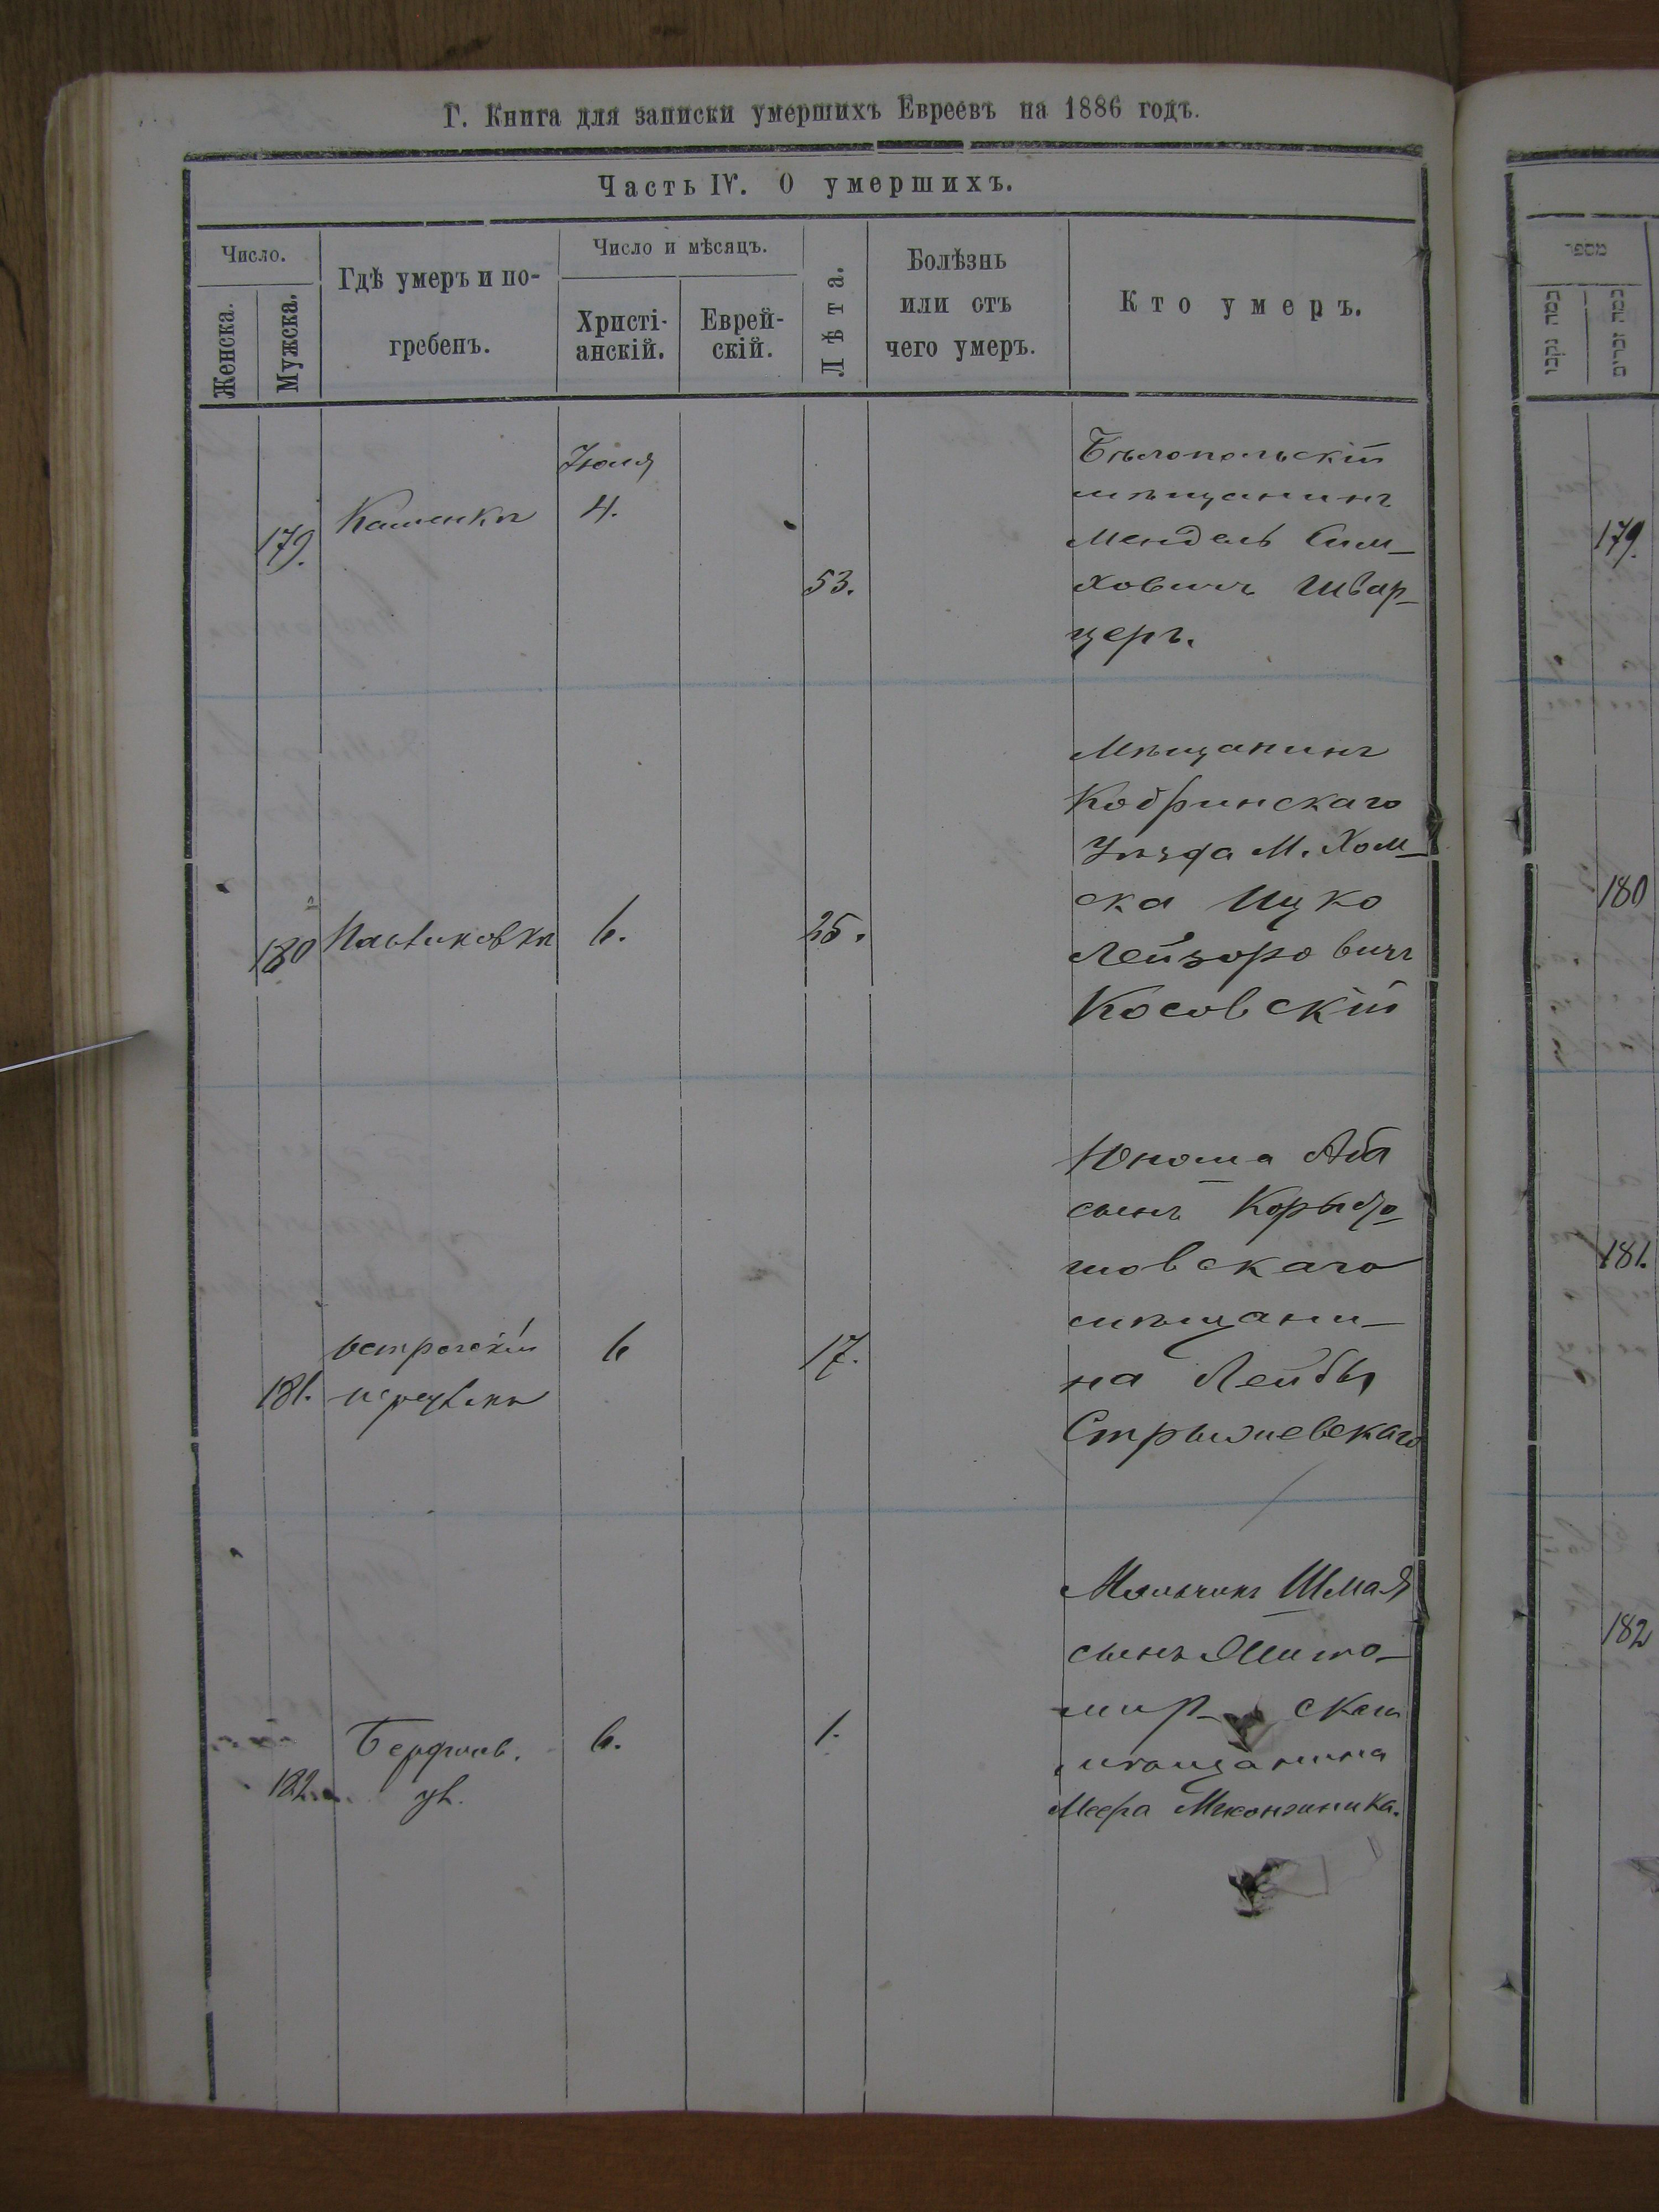 Г. Книга для записки умершихъ Евреевъ на 1886 годъ.
Часть IV. О умершихъ.
Число.
Женска.
Мужска.
Гдѣ умеръ и по-
гребенъ.
Число и мѣсяцъ.
Христі-
анскій.
Еврей-
скій.
Лѣта.
Болѣзнь
или отъ
чего умеръ.
Кто умеръ.
179.
Іюля
4.
53.
Бѣлопольскій
мѣщанинъ
Мендель Сим-
ховичъ Швар-
церъ.
180
6.
25.
Мѣщанинъ
Кобринскаго
Уѣзда М. Хом-
ска Ицко
Лейзоровичъ
Косовскій
181.
6
17.
Юноша Аба
сынъ
шовскаго
мѣщани-
на Лейбы
Стрыжевскаго
182
Бердичев.
ул.
6.
1.
Мальчикъ Шмая
сынъ Жито-
мир-
мѣщанина
Меера
מספר
179.
180
181.
182